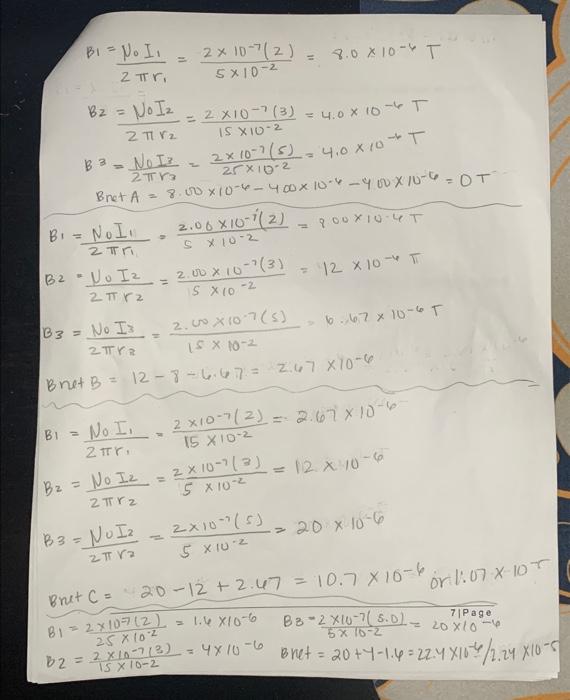 B1 = N0 I1 / 2πr1 = 2 × 10^-7(2) / 5 × 10^-2 = 8.0 × 10^-6 T
B2 = N0 I2 / 2πr2 = 2 × 10^-7(3) / 15 × 10^-2 = 4.0 × 10^-6 T
B3 = N0 I3 / 2πr3 = 2 × 10^-7(5) / 25 × 10^-2 = 4.0 × 10^-6 T
Bnet A = 8.00 × 10^-6 - 4.00 × 10^-6 - 4.00 × 10^-6 = 0 T
B1 = N0 I1 / 2πr1 = 2.00 × 10^-7(2) / 5 × 10^-2 = 8.00 × 10^-6 T
B2 = N0 I2 / 2πr2 = 2.00 × 10^-7(3) / 5 × 10^-2 = 12 × 10^-6 T
B3 = N0 I3 / 2πr3 = 2.00 × 10^-7(5) / 15 × 10^-2 = 6.67 × 10^-6 T
Bnet B = 12 - 8 - 6.67 = 2.67 × 10^-6
B1 = N0 I1 / 2πr1 = 2 × 10^-7(2) / 15 × 10^-2 = 2.67 × 10^-6
B2 = N0 I2 / 2πr2 = 2 × 10^-7(3) / 5 × 10^-2 = 12 × 10^-6
B3 = N0 I2 / 2πr3 = 2 × 10^-7(5) / 5 × 10^-2 = 20 × 10^-6
Bnet C = 20 - 12 + 2.67 = 10.7 × 10^-6 or 1.07 × 10^-5
7 | Page
B1 = 2 × 10^-7(2) / 25 × 10^-2 = 1.6 × 10^-6 B3 = 2 × 10^-7(5.0) / 5 × 10^-2 = 20 × 10^-6
B2 = 2 × 10^-7(3) / 15 × 10^-2 = 4 × 10^-6 Bnet = 20 + 4 - 1.6 = 22.4 × 10^-6 / 2.24 × 10^-5